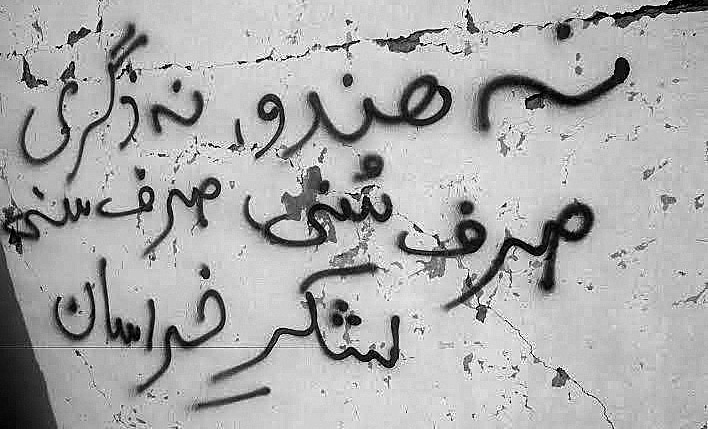 نہ ھندو، نہ ذگری
صرف سُنی صرف سنی
لشکرِ خراسان